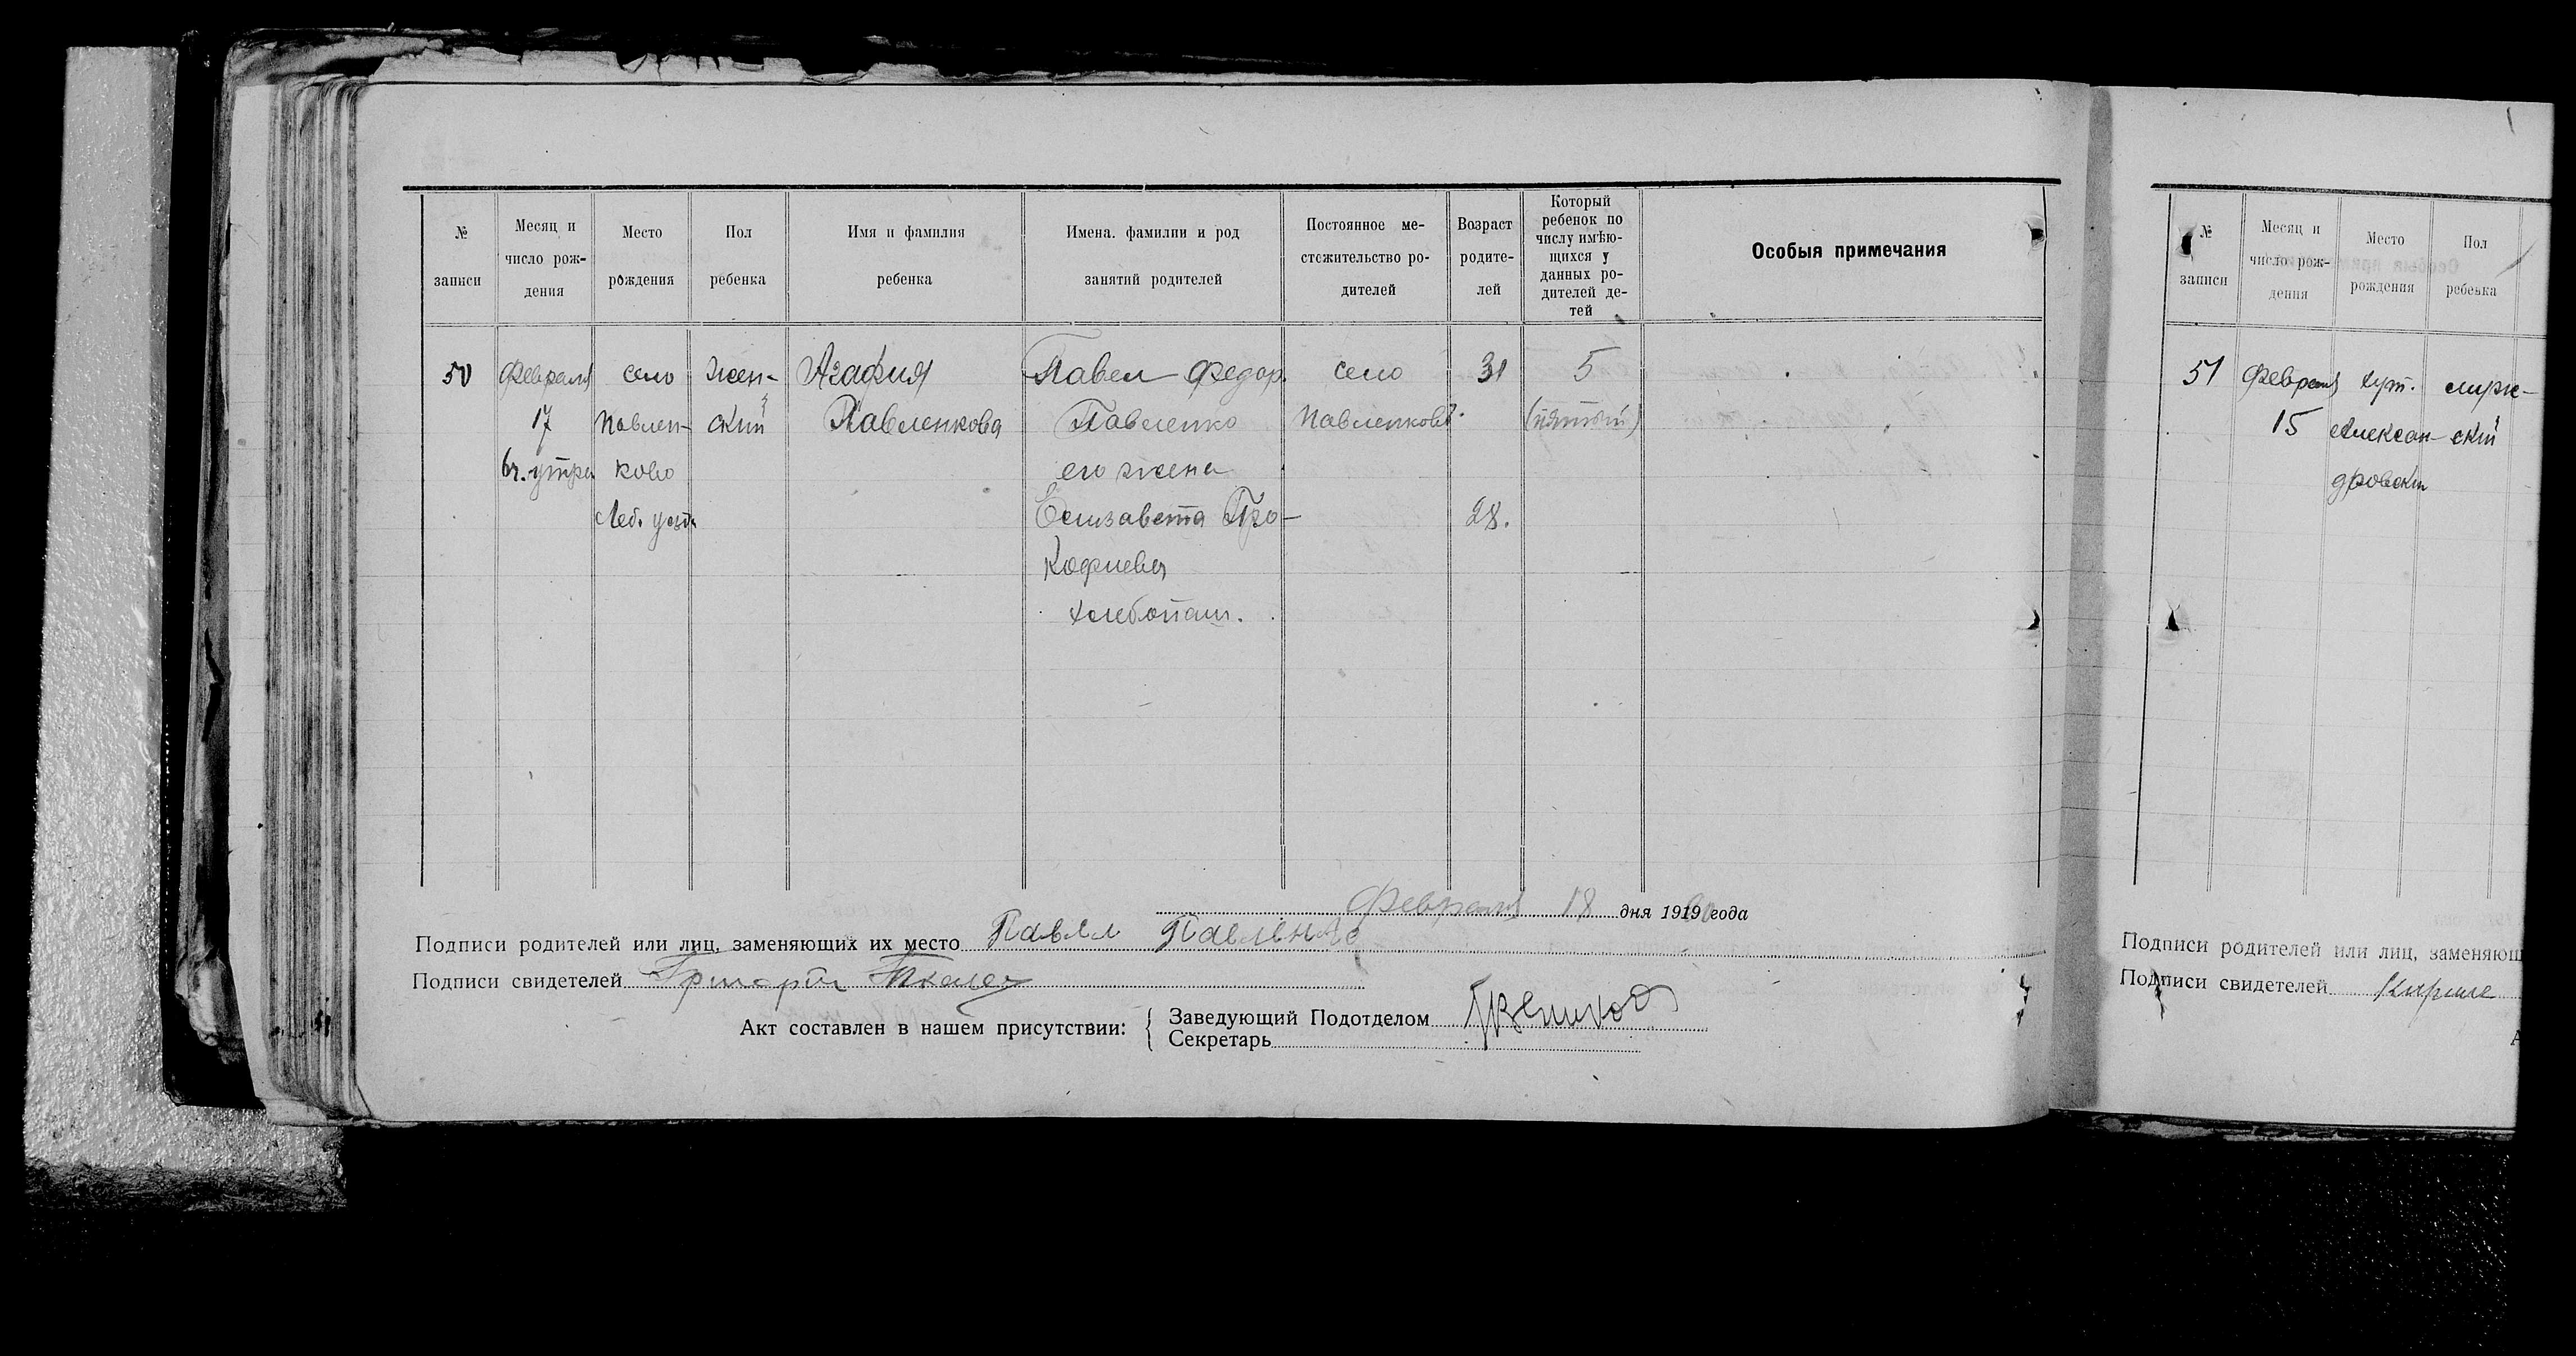 № записи
Месяц и число рождения
Место рождения
Пол ребенка
Имя и фамилия ребенка
Имена. фамилии и род занятий родителей
Постоянное местожительство родителей
Возраст родителей
Который ребенок по числу имѣющихся у данных родителей детей
Особыя примечания
50
Февраля
17
6 ч. утра
село
Павлен-
ково
Леб. уезд.
Жен-
ский
Агафия
Павленкова
Павел Федор.
Павленко
его жена
Елизавета Про-
кофиева
хлебопаш.
село
Павленково
31
28.
5
(пятый)
Февраля 18 дня 1919 года
Подписи родителей или лиц, заменяющих их место Павел Павленко
Подписи свидетелей Григорий
Акт составлен в нашем присутствии:
Заведующий Подотделом
Секретарь
№ записи
Месяц и число рождения
Место рождения
Пол ребенка
51
Февраля
15
хут.
Алексан-
дровский
мужс-
ский
Подписи родителей или лиц, заменяющ
Подписи свидетелей